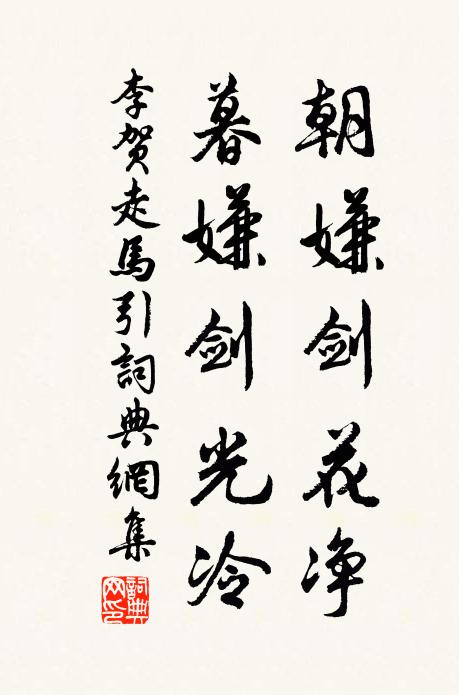 朝嫌剑花净
暮嫌剑光冷
李贺走馬引詞典網集
詞典网印